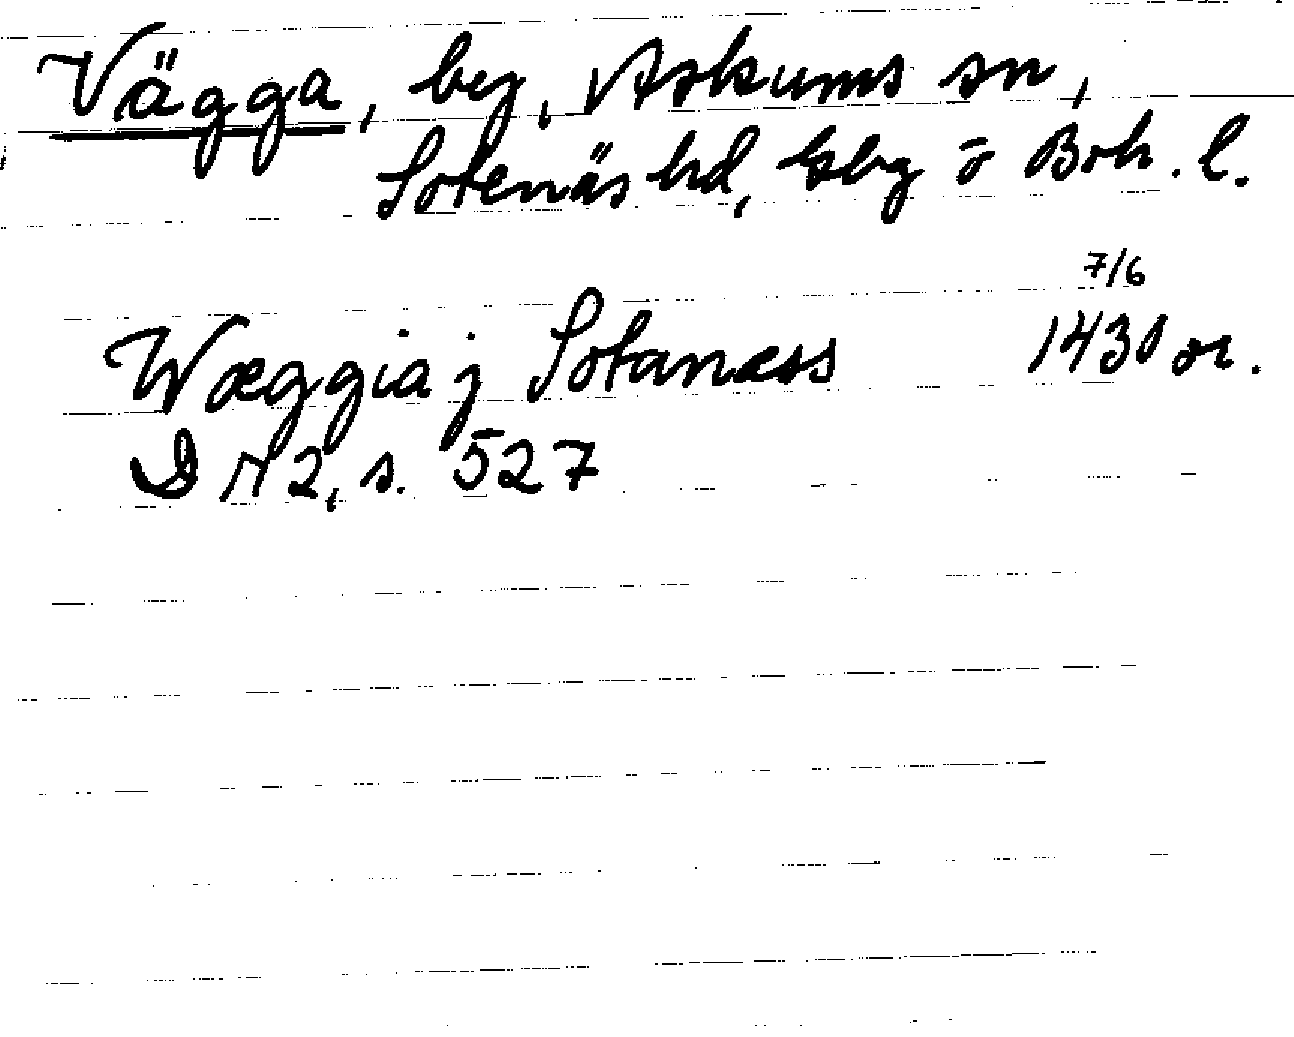 Vägga, by, Askums sn,
Sotenäs hd, Gbg o Boh. l.
7/6
Wæggia j Sotanæss 1430 or.
D A 2, s. 527